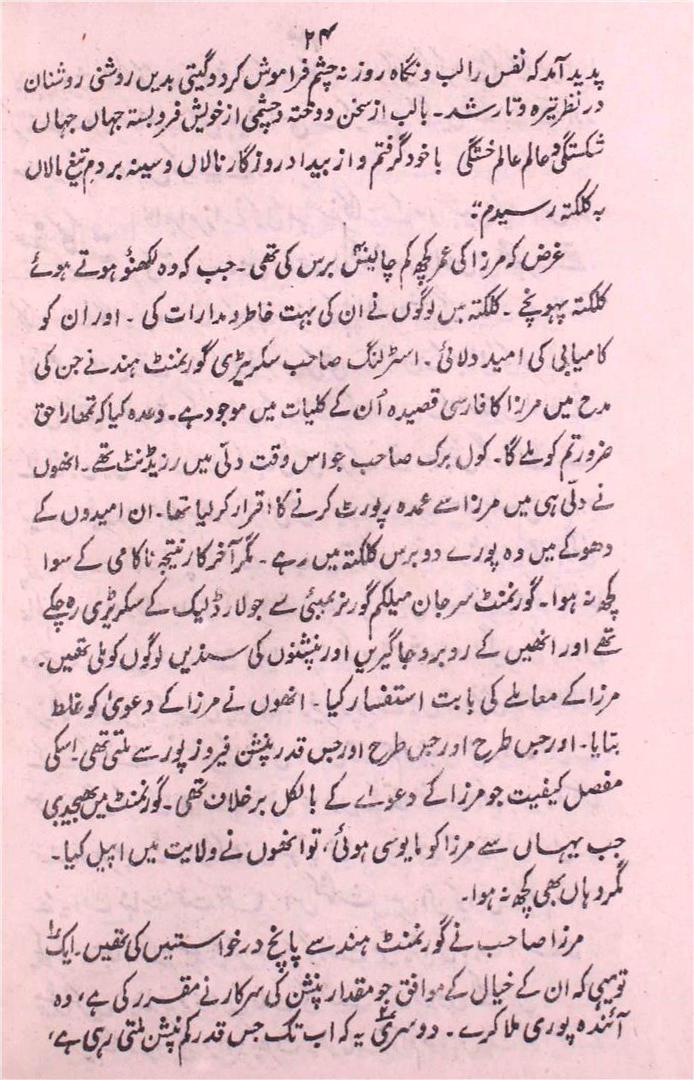 ۲۴
پدید آمد کہ نفس را لب و نگاہ روزنہ چشم فراموش کرد و گیتی بدیں روشنی روشنان
در نظر تیرہ و تار شد۔ بالب از سخن دوختہ و چشمی از خویش فروبستہ جہاں جہاں
شکستگی و عالم عالم خستگی با خود گرفتم و از بیداد روزگار نالاں و سینہ بر دم تیغ مالاں
بہ کلکتہ رسیدم"
غرض کہ مرزا کی عمر کچھ کم چالیس برس کی تھی۔ جب کہ وہ لکھنؤ ہوتے ہوئے
کلکتہ پہونچے۔ کلکتہ میں لوگوں نے ان کی بہت خاطر و مدارات کی۔ اور ان کو
کامیابی کی امید دلائی۔ اسٹرلنگ صاحب سکریٹری گورنمنٹ ہند نے جن کی
مدح میں مرزا کا فارسی قصیدہ اُن کے کلیات میں موجود ہے۔ وعدہ کیا کہ تمھارا حق
ضرور تم کو ملے گا۔ کول برک صاحب جو اس وقت دلّی میں رزیڈنٹ تھے۔ انھوں
نے دلّی ہی میں مرزا سے عمدہ رپورٹ کرنے کا اقرار کر لیا تھا۔ ان امیدوں کے
دھوکے میں وہ پورے دو برس کلکتہ میں رہے۔ مگر آخر کار نتیجہ ناکامی کے سوا
کچھ نہ ہوا۔ گورنمنٹ سر جان میلکم گورنر بمبئی سے جو لارڈ لیک کے سکریٹری رہ چکے
تھے اور انھیں کے روبرو جاگیریں اور پنشنوں کی سندیں لوگوں کو ملی تھیں۔
مرزا کے معاملے کی بابت استفسار کیا۔ انھوں نے مرزا کے دعویٰ کو غلط
بتایا۔ اور جس طرح اور جس طرح اور جس قدر پنشن فیروز پور سے ملتی تھی۔ اسکی
مفصل کیفیت جو مرزا کے دعوے کے بالکل برخلاف تھی۔ گورنمنٹ میں بھیجدی
جب یہاں سے مرزا کو مایوسی ہوئی، تو انھوں نے ولایت میں اپیل کیا۔
مگر وہاں بھی کچھ نہ ہوا۔
مرزا صاحب نے گورنمنٹ ہند سے پانچ درخواستیں کی تھیں۔ ایک
تو یہی کہ ان کے خیال کے موافق جو مقدار پنشن کی سرکار نے مقرر کی ہے، وہ
آئندہ پوری ملا کرے۔ دوسری یہ کہ اب تک جس قدر کم پنشن ملتی رہی ہے،